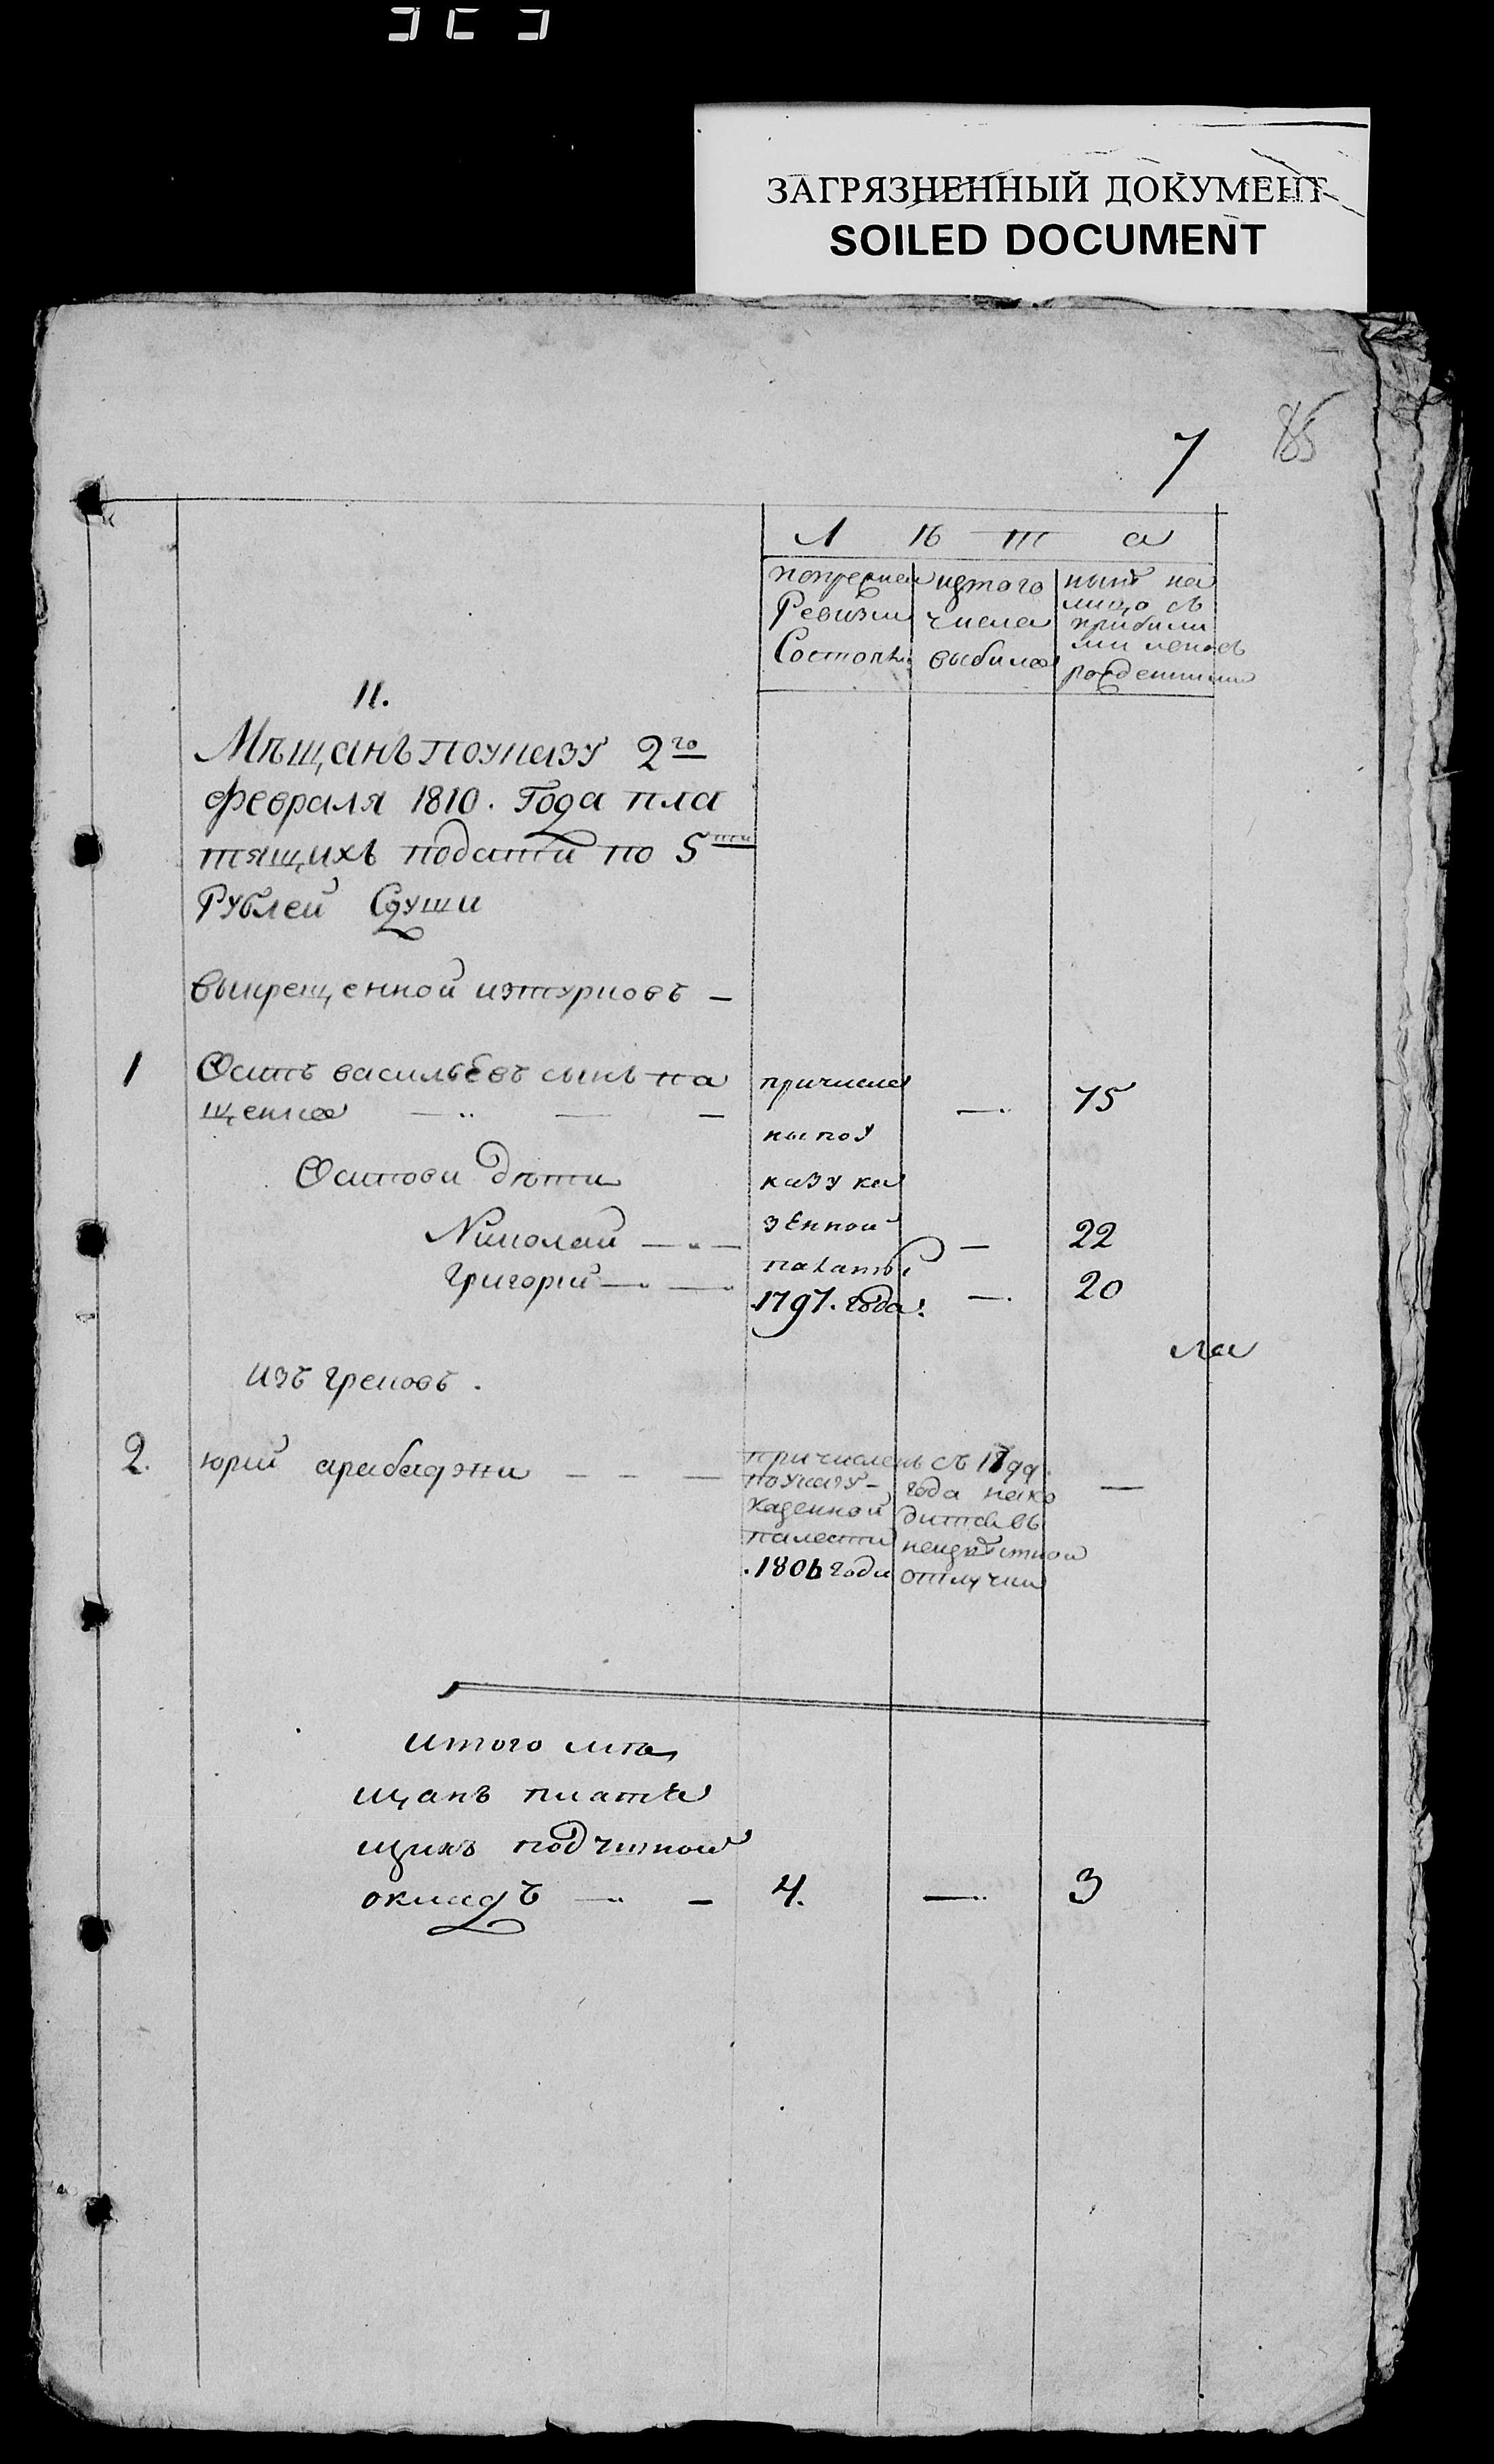 ЗАГРЯЗНЕННЫЙ ДОКУМЕНТ
SOILED DOCUMENT
7 85
Л ѣ т а
попрежней
Ревизіи
Состоялъ
изтого
числа
выбыло
нынѣ на
лицо съ
прибыли
ми ипослѣ
рожденными
II.
Мѣщанъ поуказу 2го
февраля 1810. Года пла
тящихъ подати по 5ти
Рублей Сдуши
выкрещенной изтурковъ —
1 Осипъ васильевъ сынъ па
щенко — —
75
Осипови дѣти
Николай — — — 22
Григорій — — — 20
причисле
ны поу
казу ка
зенной
палаты
1797. года.
ла
изъ грековъ .
2. юрій арабаджи — — —
причисленъ
поуказу
казенной
палаты
1806 года
съ 1799.
года нахо
дится въ
неизвѣстной
отлучки
—
итого мѣ
щанъ платя
щихъ подушной
окладъ — — 4. — 3